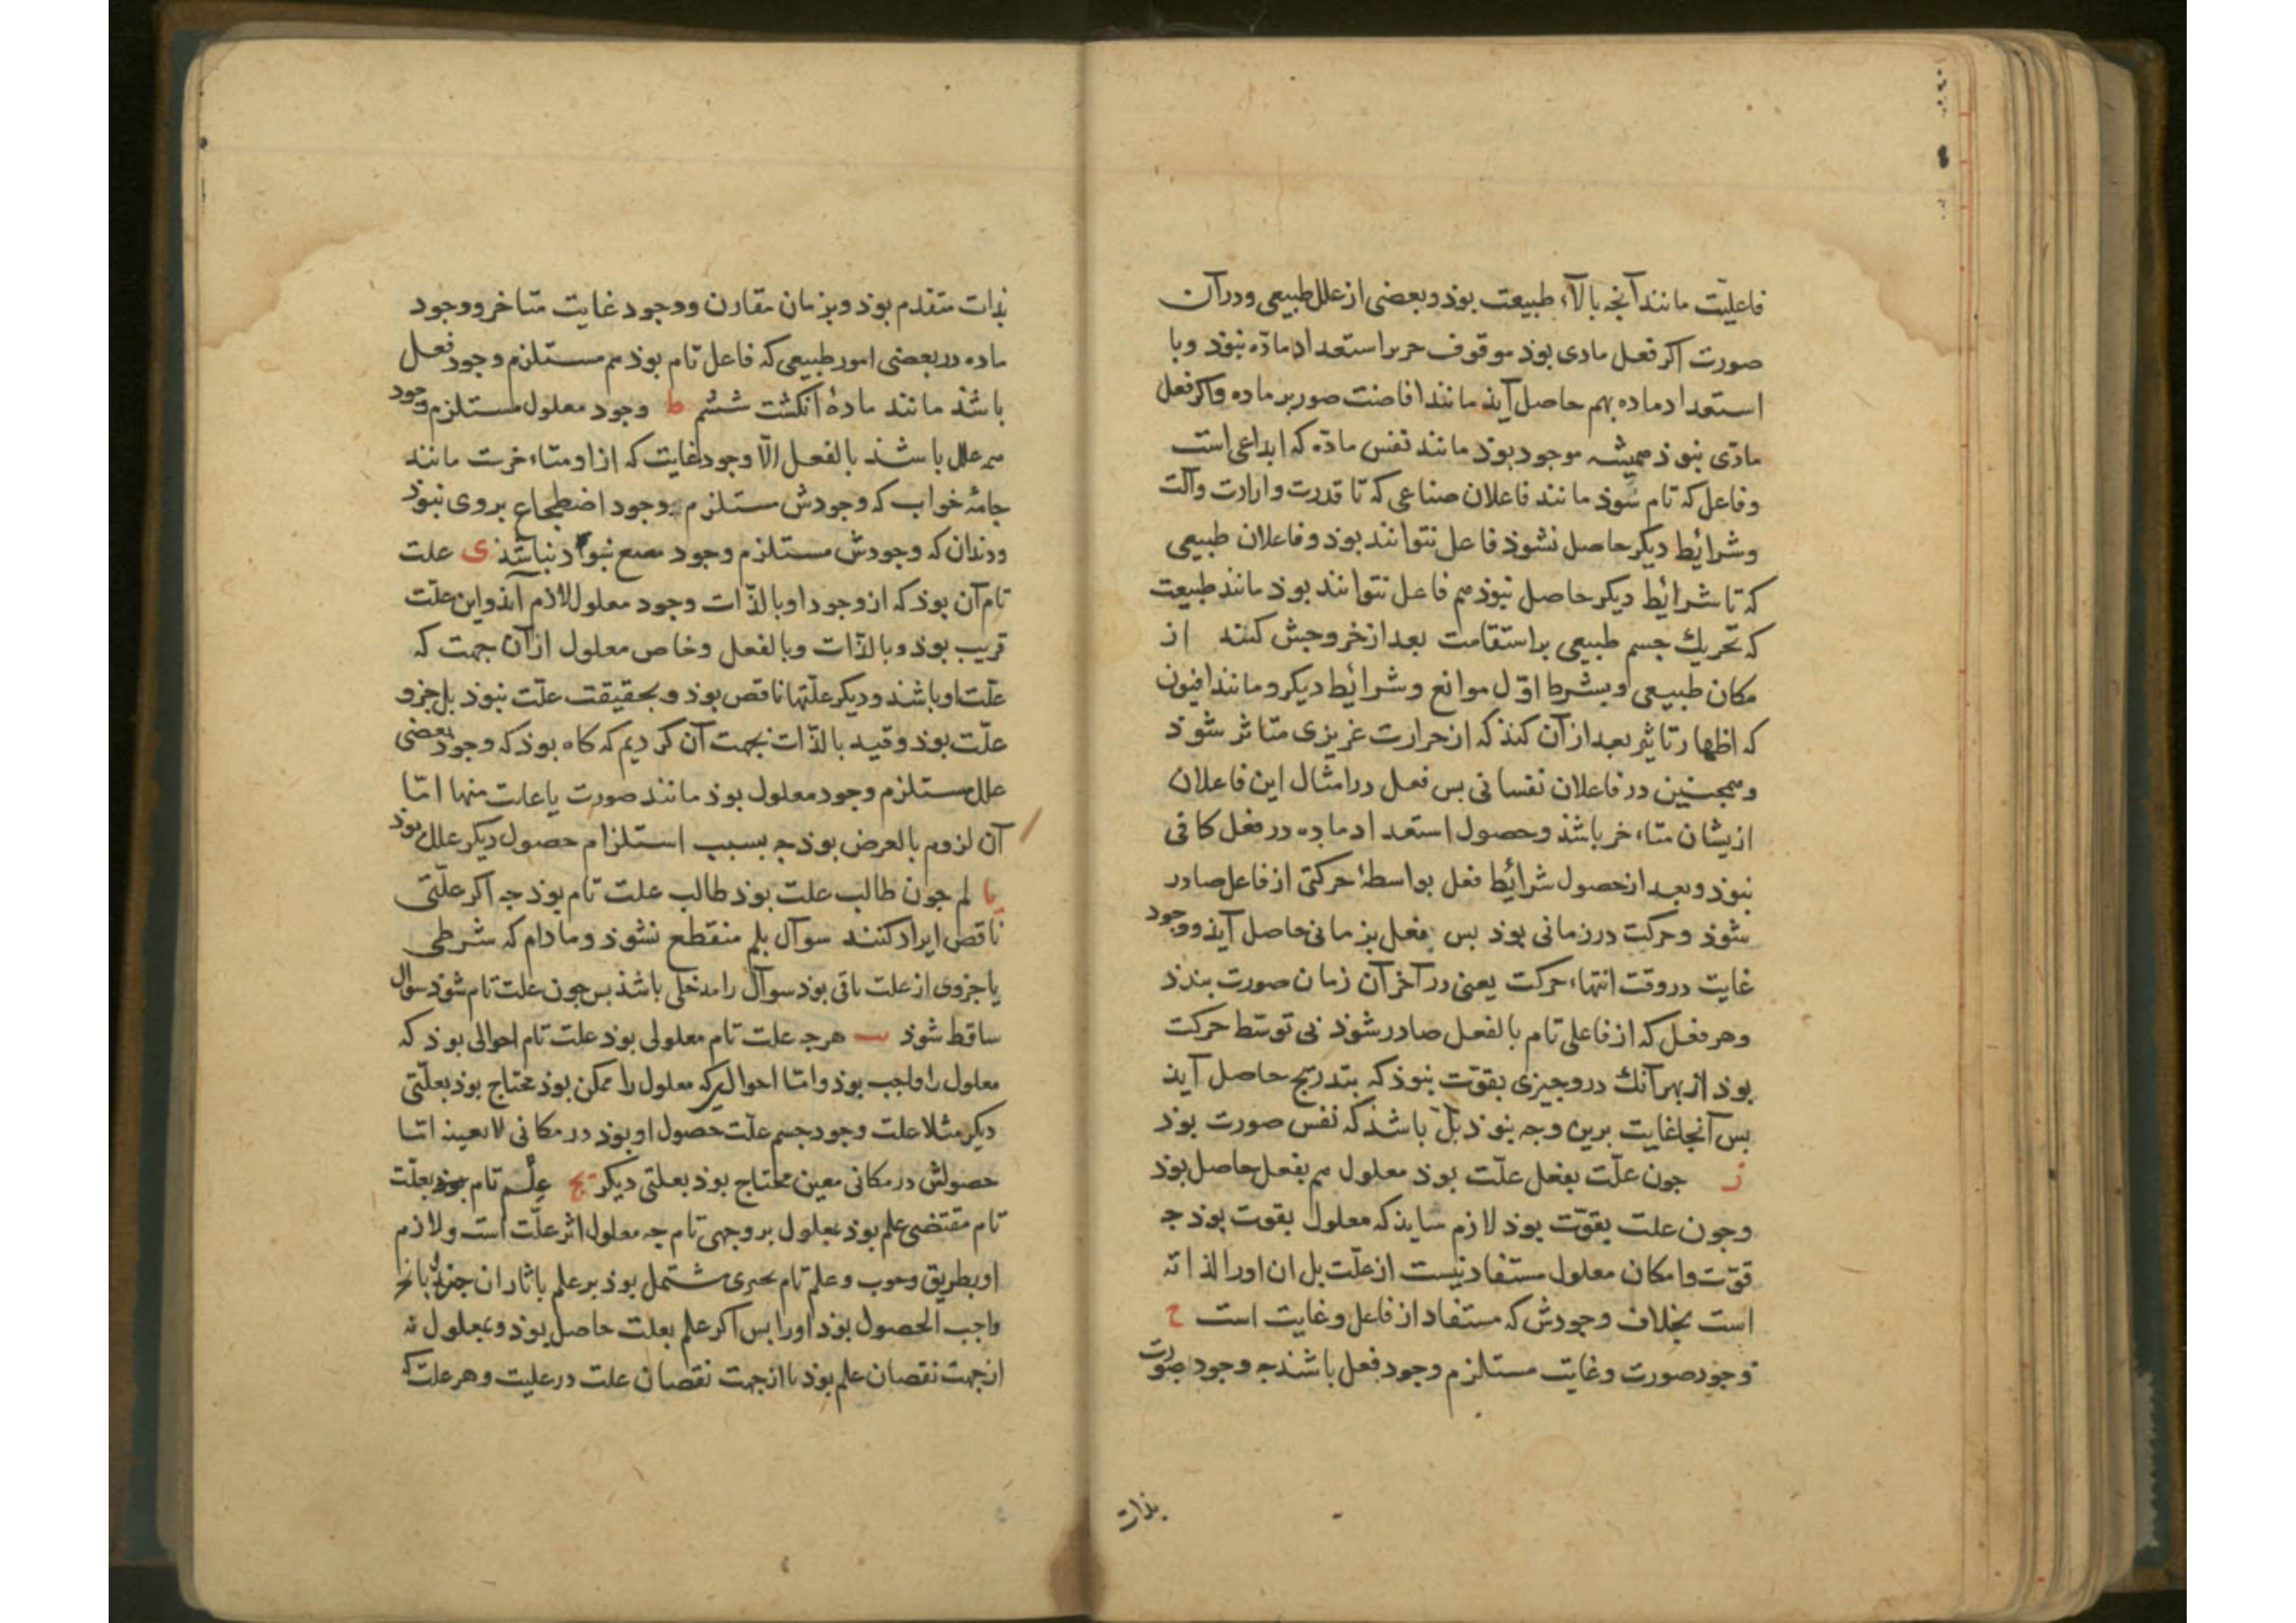 فاعلیّت مانند آنجه بالآء طبیعت بوذ و بعضی از علل طبیعی و در آن
صورت اکر فعل مادی بوذ موقوف جز بر استعداد مادّه نبوذ وبا
استعداد ماده بهم حاصل آیذ مانند افاضت صور بر ماده واکر فعل
مادّی نبوذ همیشه موجود بوذ مانند نفس مادّه که ابداعی است
وفاعل که تام شوذ مانند فاعلان صناعی که تا قدرت وارادت وآلت
وشرائط دیکر حاصل نشوذ فاعل نتوانند بوذ وفاعلان طبیعی
که تا شرائط دیکر حاصل نبوذ هم فاعل نتوانند بوذ مانند طبیعت
که تحریك جسم طبیعی بر استقامت بعد از خروجش کند از
مکان طبیعی او بشرط اوّل موانع وشرائط دیکر ومانند افیون
که اظهار تاثیر بعد از آن کنذ که از حرارت غریزی متاثر شوذ
وهمجنین در فاعلان نفسانی بس فعل در امثال این فاعلان
ازیشان متاءخر باشذ وحصول استعداد ماده در فعل کافی
نبوذ وبعد از حصول شرائط فعل بواسطهٔ حرکتی از فاعل صادر
شوذ وحرکت در زمانی بوذ بس فعل بزمانی حاصل آیذ ووجود
غایت در وقت انتهاء حرکت یعنی در آخر آن زمان صورت بندذ
وهر فعل که از فاعلی تام بالفعل صادر شوذ بی توسّط حرکت
بوذ از بهر آنك درو جیزی بقوّت نبوذ که بتدریج حاصل آیذ
بس آنجا غایت برین وجه نبوذ بل باشذ که نفس صورت بوذ
ز جون علّت بفعل علّت بوذ معلول هم بفعل حاصل بوذ
وجون علت بقوّت بوذ لازم نیایذ که معلول بقوت بوذ جه
قوّت وامکان معلول مستفاد نیست از علّت بل ان اورا لذاته
است بخلاف وجودش که مستفاد از فاعل وغایت است ح
وجود صورت وغایت مستلزم وجود فعل باشند جه وجود صورت
بذات
بذات متقدم بوذ وبزمان مقارن ووجود غایت متاخر ووجود
ماده در بعضی امور طبیعی که فاعل تام بوذ هم مستلزم وجود فعل
باشذ مانند مادهٔ انکشت ششم ط وجود معلول مستلزم وجود
همه علل باشذ بالفعل الّا وجود غایت که از او متاءخرست مانند
جامهٔ خواب که وجودش مستلزم وجود اضطجاع بر وی نبوذ
ودندان که وجودش مستلزم وجود نبوذ نباشذ ی علت
تام آن بوذ که از وجود او بالذّات وجود معلول لازم آیذ واین علّت
قریب بوذ وبالذّات وبالفعل وخاص معلول از آن جهت که
علّت او باشذ ودیکر علّتها ناقص بوذ وبحقیقت علّت نبوذ بل جزو
علّت بوذ وقید بالذّات بجهت آن کردیم که کاه بوذ که وجود بعضی
علل مستلزم وجود معلول بوذ مانند صورت یا غایت منها امّا
آن لزوم بالعرض بوذ جه بسبب استلزام حصول دیکر علل بوذ
یا لم جون طالب علت بوذ طالب علت تام بوذ جه اکر علّتی
ناقص ایراد کنند سوآل بلم منقطع نشوذ ومادام که شرطی
یا جزوی از علت باقی بوذ سوآل را مدخلی باشذ بس جون علت تام شوذ سوآل
ساقط شوذ یب هرجه علت تام معلولی بوذ علت تام احوالی بوذ که
معلول را واجب بوذ وامّا احوالی که معلول را ممکن بوذ محتاج بوذ بعلّتی
دیکر مثلا علت وجود جسم علّت حصول او بوذ در مکانی لا بعینه امّا
حصولش در مکانی معین محتاج بوذ بعلتی دیکر یج علم تام بعلّت
تام مقتضی علم بوذ بمعلول بر وجهی تام جه معلول اثر علّت است ولازم
او بطریق وجوب وعلم تام بجیزی مشتمل بوذ بر علم باثار ان جیز
واجب الحصول بوذ اورا بس اکر علم بعلت حاصل بوذ وبمعلول نه
از جهت نقصان علم بوذ یا از جهت نقصان علت در علیت وهر علت که